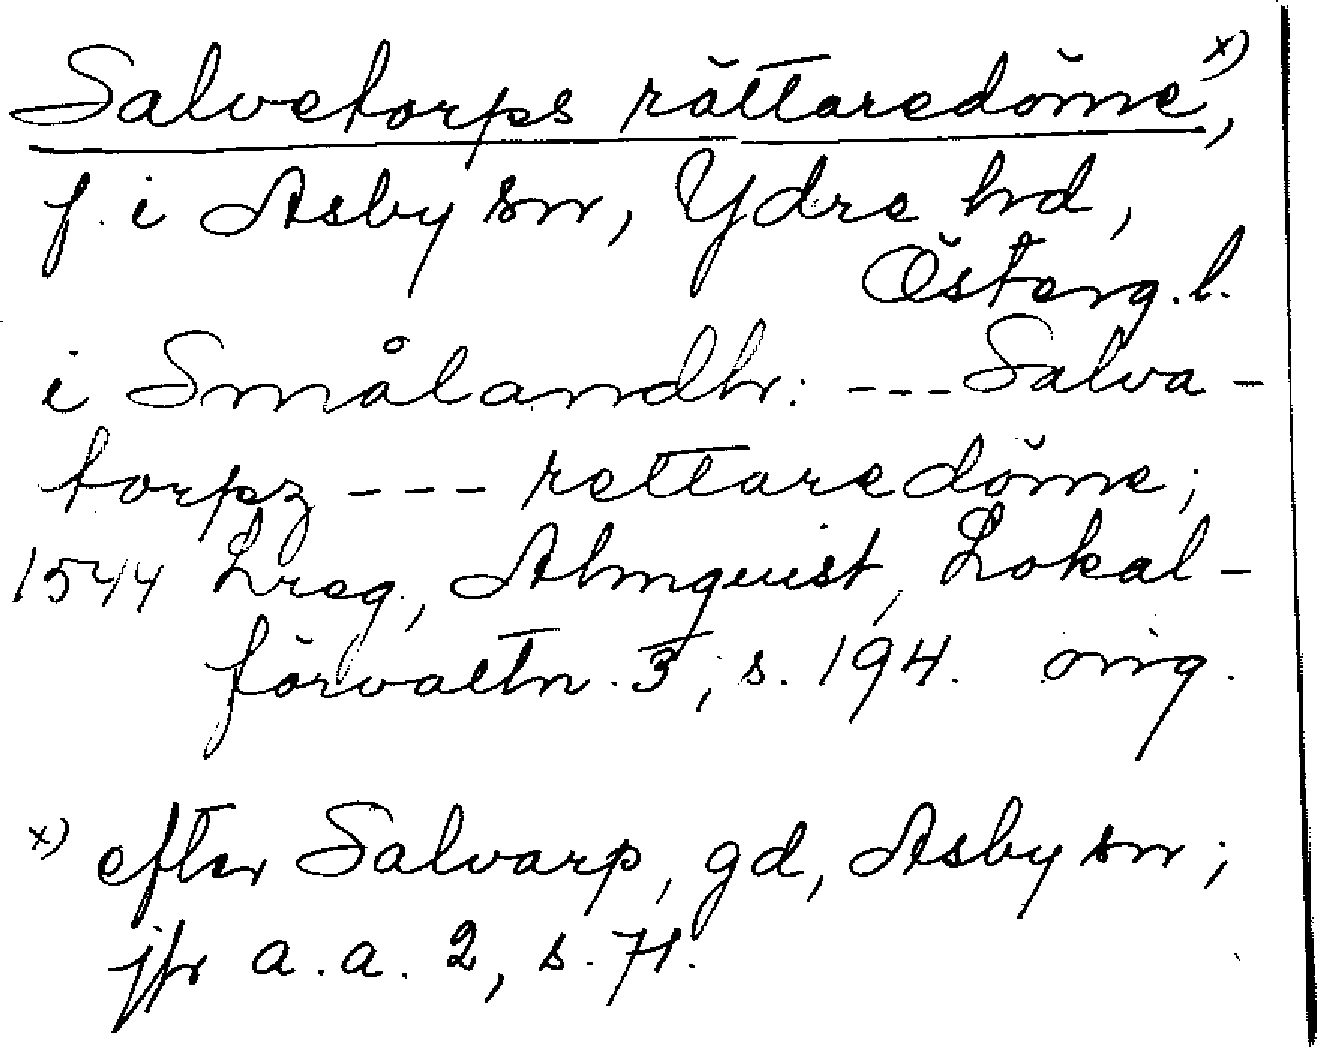 Salvetorps rättaredöme x),
f. i Asby sn, Ydre hd,
Österg. l.
i Smålandhr: --- Salva-
torpz --- rettaredöme;
1544 Lreg., Almquist, Lokal-
förvaltn. 3, s. 194. omg.
x) efter Salvarp, gd, Asby sn;
jfr a.a. 2, s. 71.